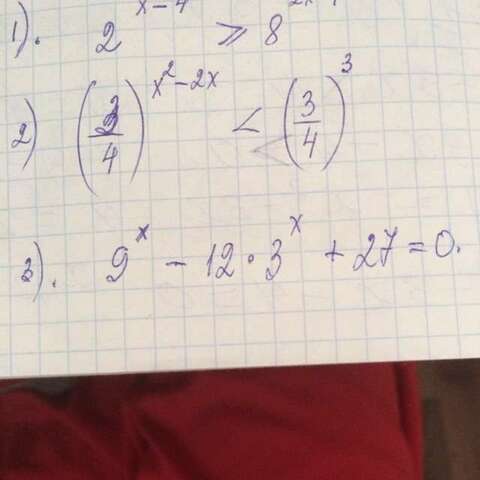 1). 2^{x-4} ⩾ 8
2) (3/4)^{x²-2x} < (3/4)^3
3). 9^x - 12·3^x + 27 = 0.